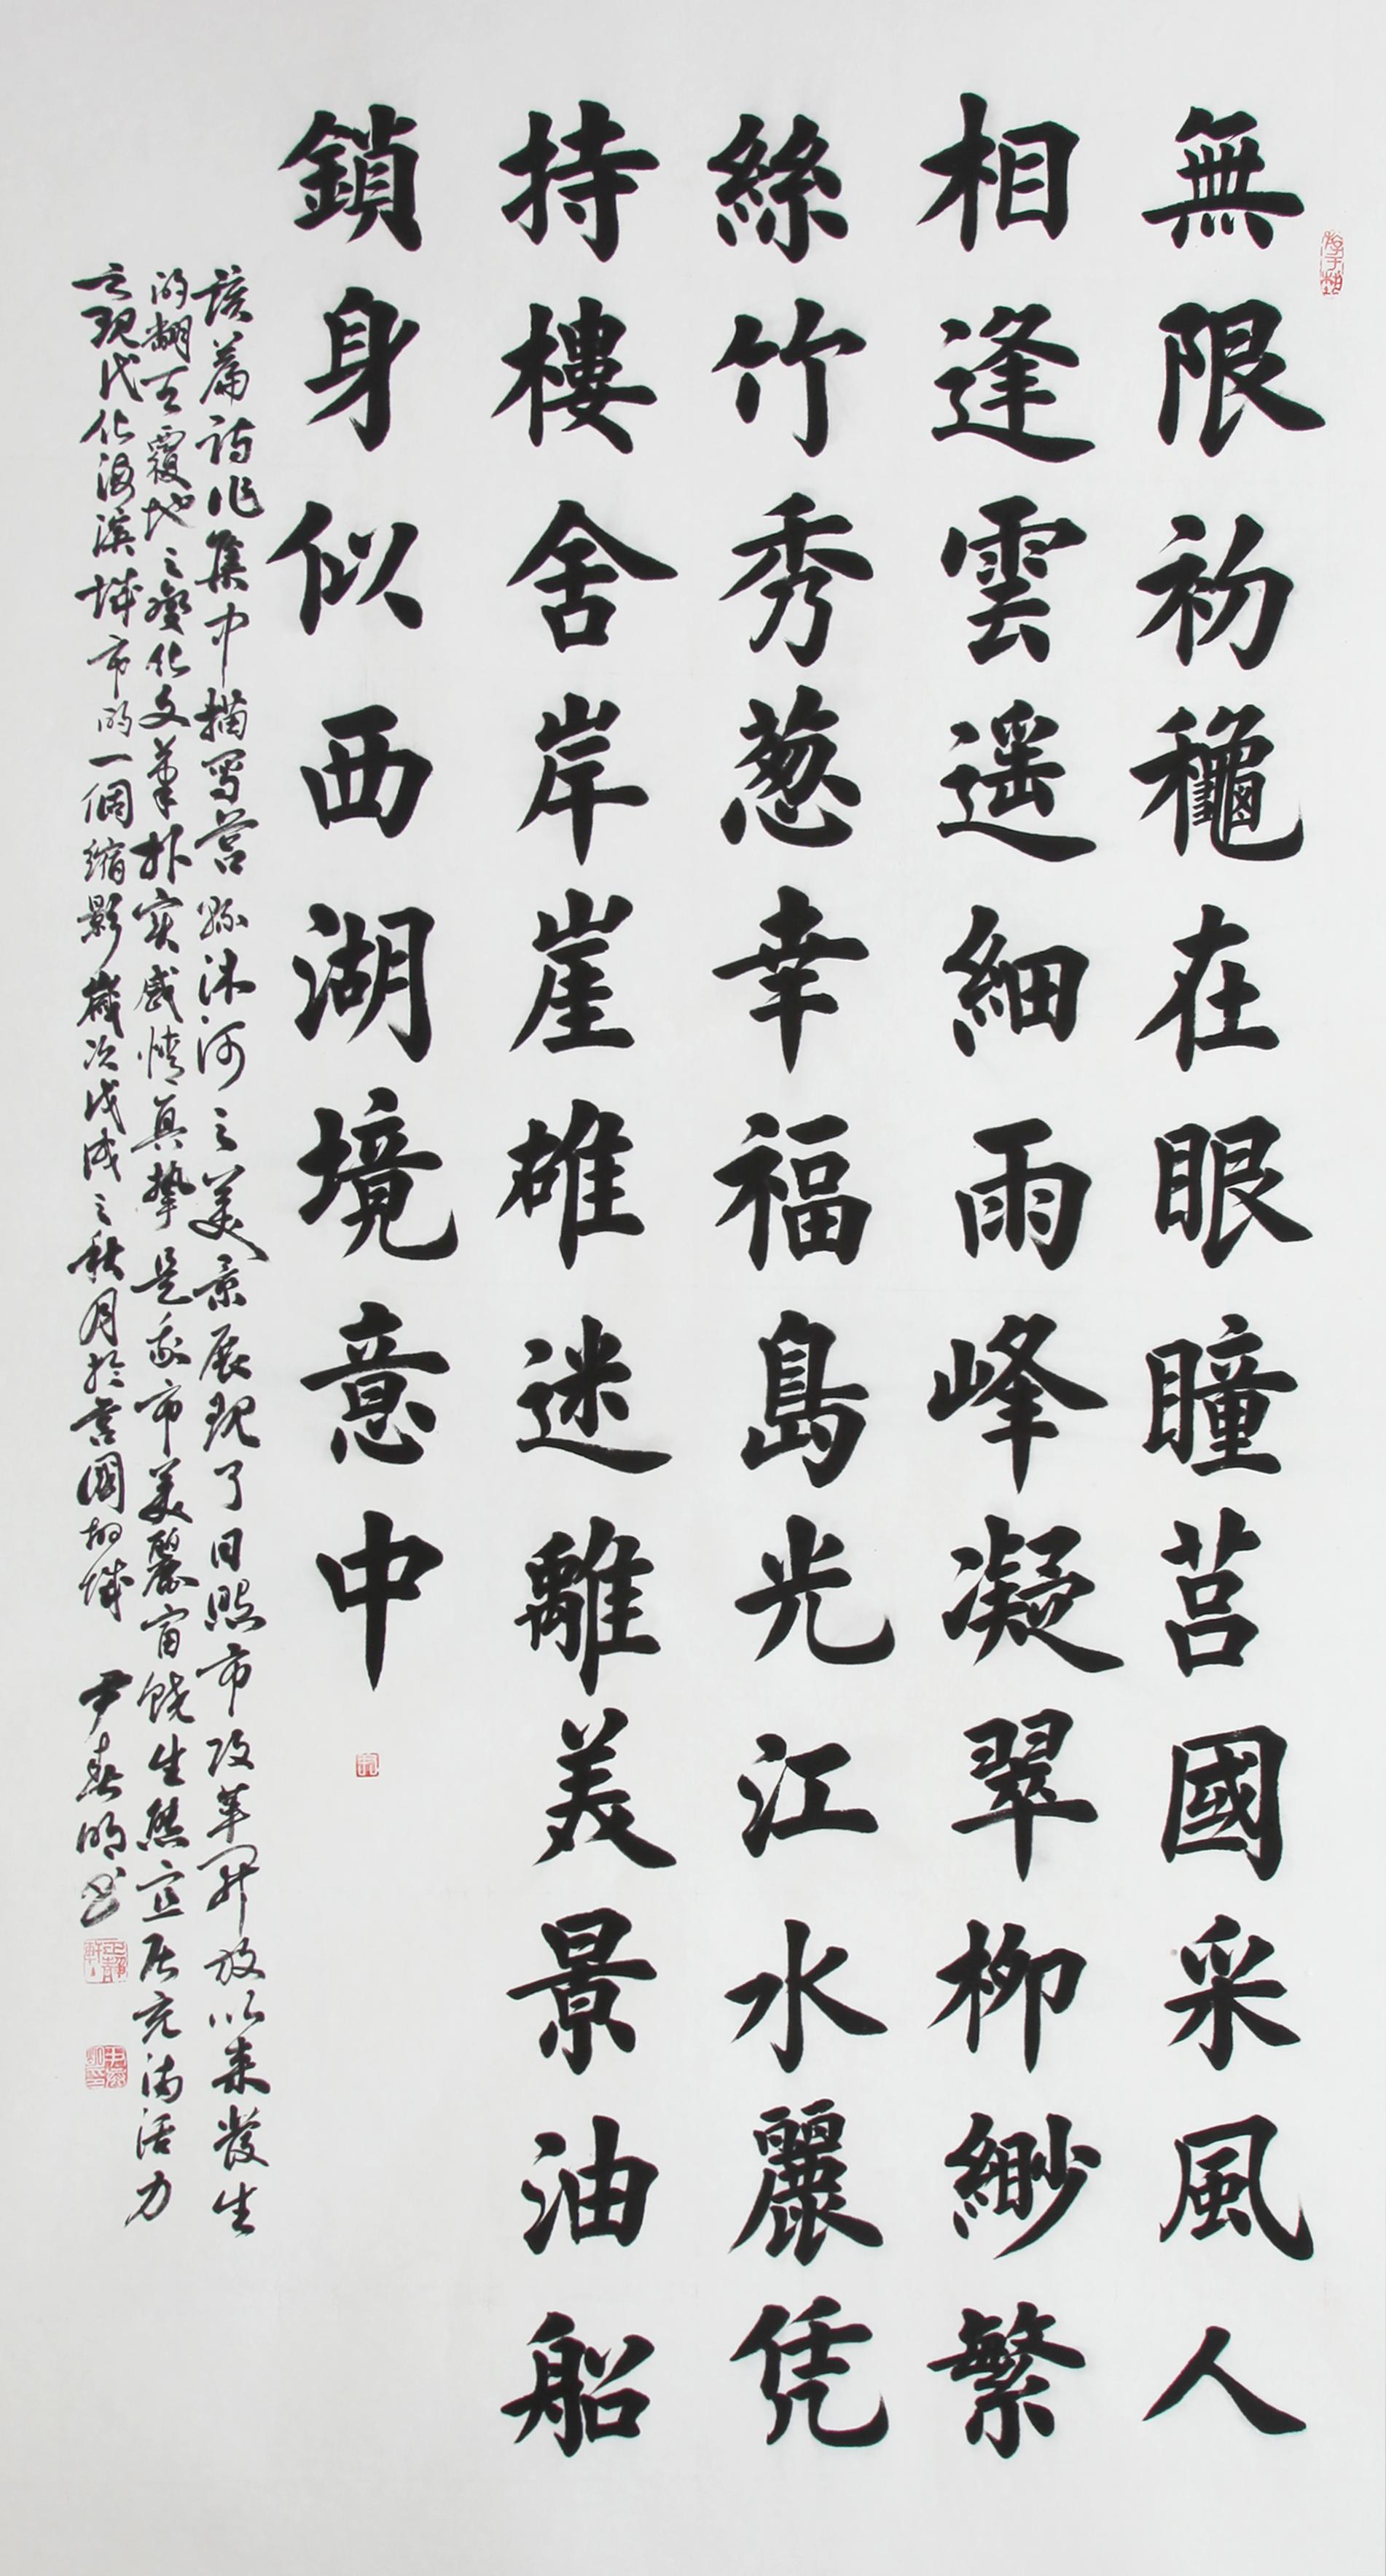 無限初龝在眼瞳莒國采風人
相逢雲遥細雨峰凝翠柳緲繁
絲竹秀葱幸福島光江水麗凭
持樓舍岸崖雄迷離美景油船
鎖身似西湖境意中
該篇詩作集中描写莒縣沭河之美景展現了日照市改革开放以来發生
的翻天覆地之變化文筆朴實感情真摯是我市美麗富饒生態宜居充滿活力
之現代化海濱城市的一個缩影歲次戊戌之秋月於莒國故城 尹春明书